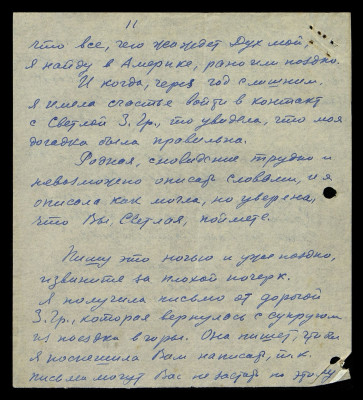 11
что все, чего жаждет Дух мой,
я найду в Америке, рано или поздно.
И когда, через год с лишним
я имела счастье войти в контакт
с Светлой З. Гр., то увидела, что моя
догадка была правильна.
Родная, сновидение трудно и
невозможно описать словами, и я
описала как могла, но уверена,
что Вы, Светлая, поймете.
Пишу это ночью и уже поздно,
извините за плохой почерк.
Я получила письмо от дорогой
З. Гр., которая вернулась с супругом
из поездки в горы. Она пишет, чтобы
я поспешила Вам написать, т. к.
письма могут Вас не застать на